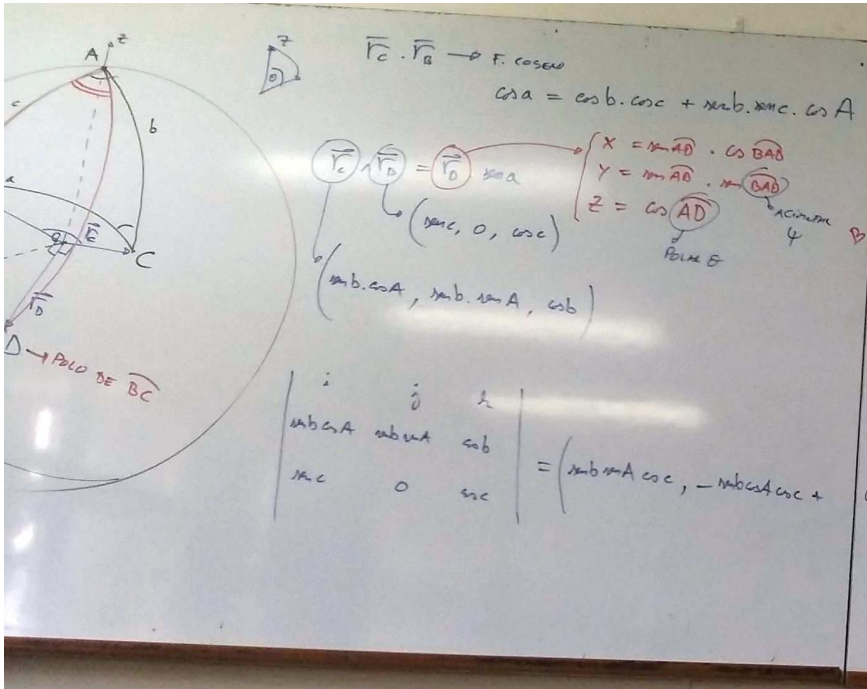 A
z
c
b
a
C
r̅_C
r̅_D
D → POLO DE B͡C
z
θ
r̅_C . r̅_B → F. COSENO
cos a = cos b . cos c + sen b . sen c . cos A
r̅_C ∧ r̅_B = r̅_D sen a
X = sen A͡D . cos B͡AD
Y = sen A͡D . sen B͡AD
Z = cos A͡D
ACIMUTAL
φ
POLAR θ
B
(sen c, 0, cos c)
(sen b . cos A, sen b . sen A, cos b)
i j k
sen b cos A sen b sen A cos b
sen c 0 cos c
= (sen b sen A cos c, - sen b cos A cos c +